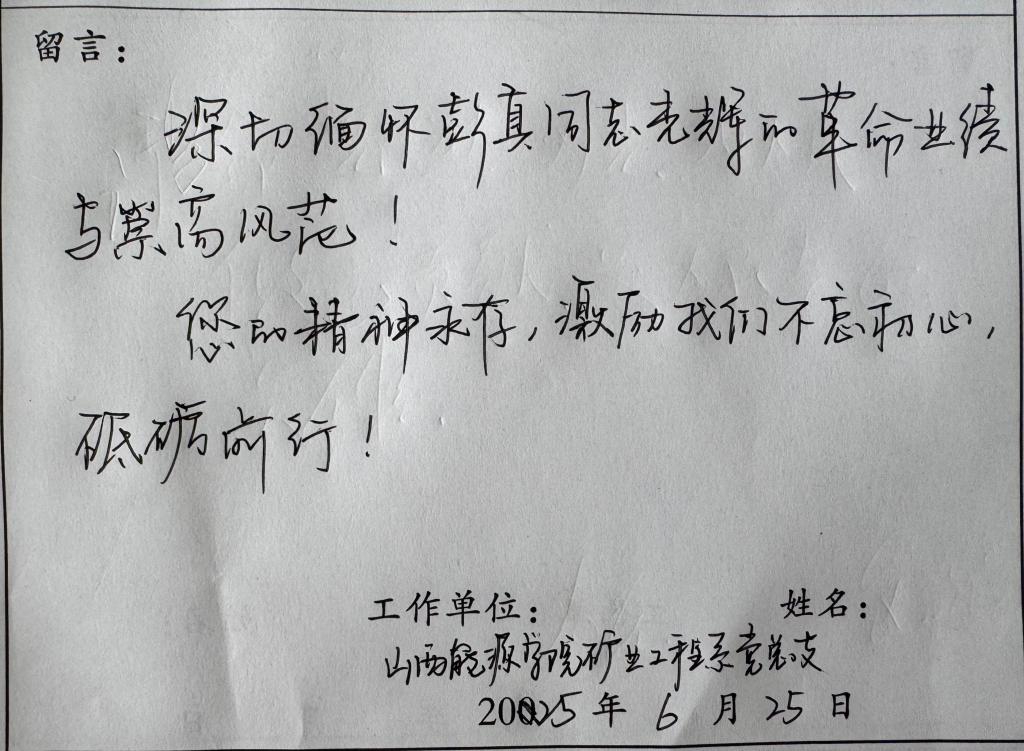 留言：
深切缅怀彭真同志光辉的革命业绩
与崇高风范！
您的精神永存，激励我们不忘初心，
砥砺前行！
工作单位： 姓名：
山西能源学院矿业工程系党总支
2025年6月25日